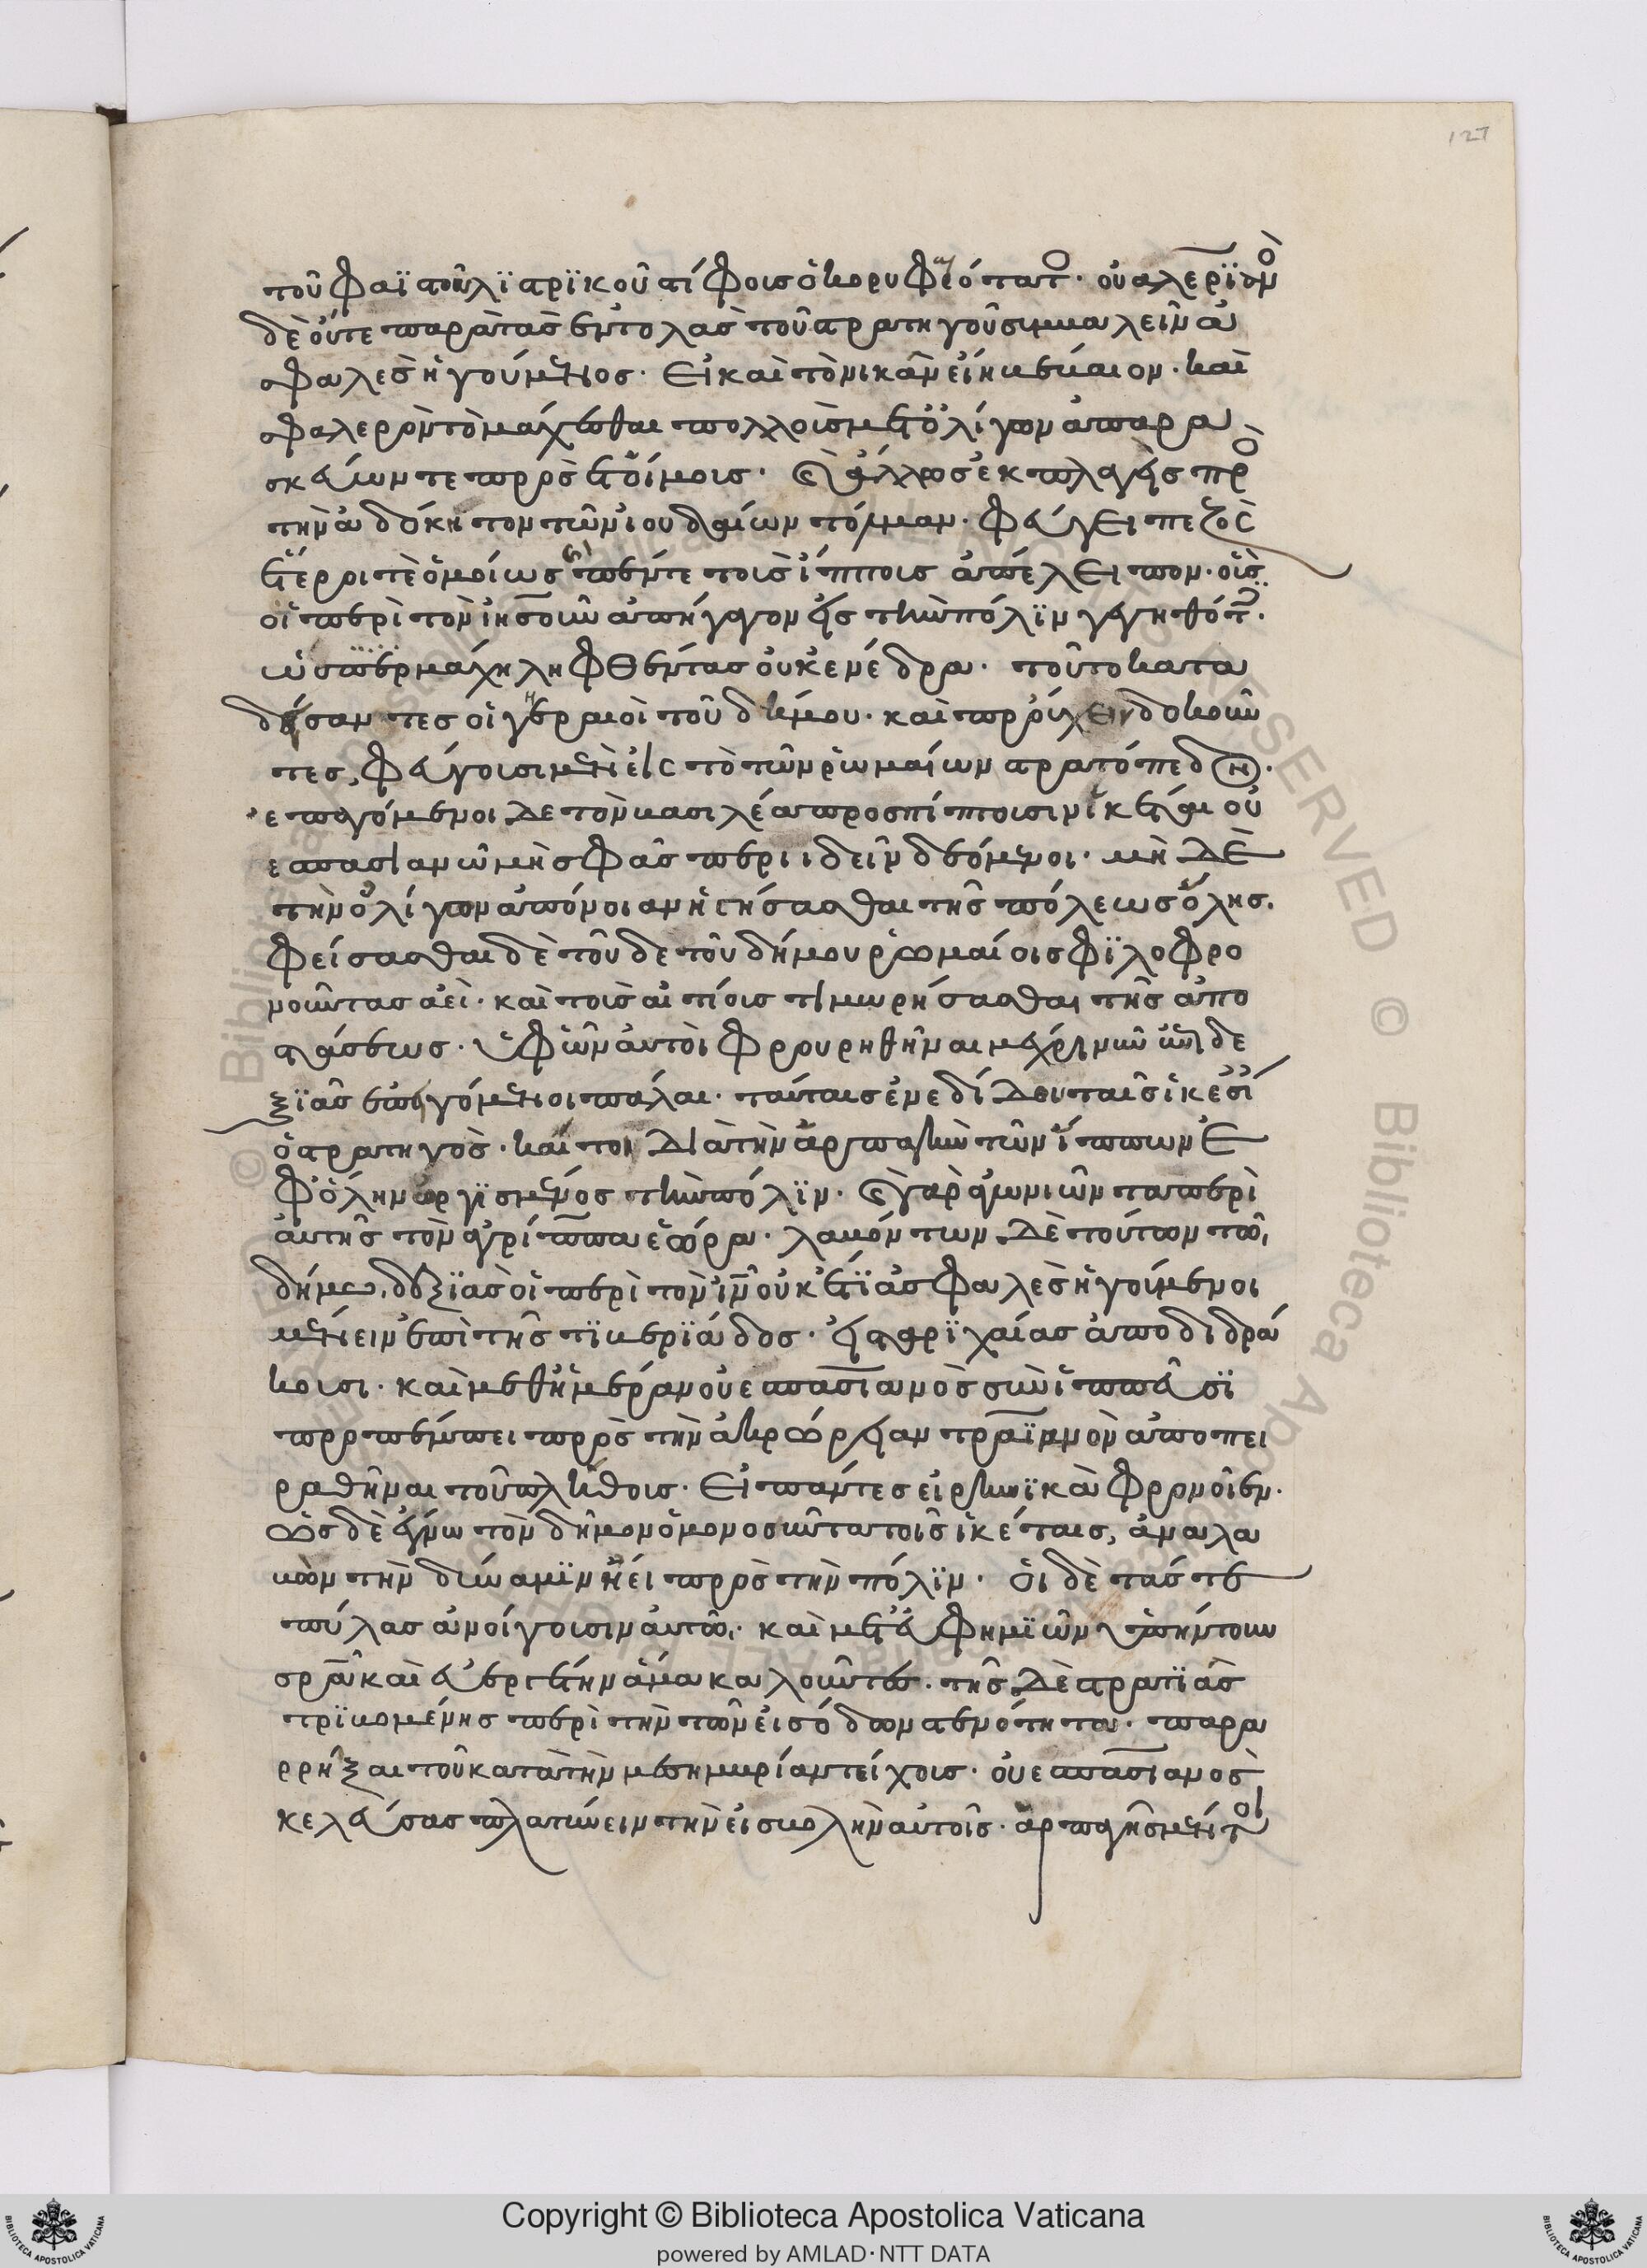 127
τοῦ φαϊ τοῦ λῃστρϊκοῦ στίφους ὁ κορυφαιότατος. οὐαλερϊανὸς
δὲ οὔτε παρὰ τὰς ἐντολὰς τοῦ στρατηγοῦ συμβαλεῖν ἀ
σφαλὲς ἡγούμενος. εἰ καὶ τὸ νικᾶν εἴη βέβαιον. καὶ
σφαλερὸν τὸ μάχεσθαι πολλοῖς μετ ὀλίγων ἀπαρα
σκεύων τε πρὸς ἑτοίμους. καὶ ἄλλως ἐκπλαγεὶς πρὸς
τὴν ἀδόκητον τῶν ἰουδαίων τόλμαν. φεύγει πεζὸς
ἕτεροί τε ὁμοίως πέντε τοὺς ἵππους ἀπέλειπον. οὓς
οἱ περὶ τὸν ἰησοῦν ἀπήγαγον εἰς τὴν πόλϊν γεγηθότες.
ὡσπερ μάχη ληφθέντας οὐκ ἐνέδρα. τοῦτο κατα
δείσαντες οἱ γηραιοὶ τοῦ δήμου. καὶ προύχειν δοκοῦν
τες, φεύγουσι μὲν εἰς τὸ τῶν ῥωμαίων στρατόπεδον.
ἐπαγόμενοι δὲ τὸν βασιλέα προσπίπτουσιν ἱκέται οὐ
εσπασιανῶ μὴ σφᾶς περιιδεῖν δεόμενοι. μὴ δὲ
τὴν ὀλίγων ἀπόνοιαν ἡγήσασθαι τῆς πόλεως ὅλης.
φείσασθαι δὲ τοῦδε τοῦ δήμου ῥωμαίοις φϊλοφρο
νοῦντας ἀεὶ. καὶ τοὺς αἰτίους τιμωρήσασθαι τῆς ἀπο
στάσεως. ὑφ ὧν αὐτοὶ φρουρηθῆναι μέχρι νῦν ἐπὶ δε
ξϊὰς ἐπειγόμενοι πάλαι. ταύταις ἐνεδίδου ταῖς ἱκεσίαις
ὁ στρατηγὸς. καίτοι διὰ τὴν ἁρπαγὴν τῶν ἵππων ἐ
φ ὅλην ὠργϊσμένος τὴν πόλϊν. καὶ γὰρ ἀγωνιῶντα περὶ
αὐτῆς τὸν ἀγρίππαν ἑώρα. λαβόντων δὲ τούτων τῶ
δήμω δεξϊὰς οἱ περὶ τὸν ἰησοῦν οὐκέτϊ ἀσφαλὲς ἡγούμενοι
μένειν ἐπὶ τῆς τϊβερϊάδος. εἰς ταρϊχαίας ἀποδιδρά
σκουσι. καὶ μεθ ἡμέραν οὐεσπασιανὸς σὺν ἱππεῦσϊ
προπέμπει πρὸς τὴν ἀκρώρειαν τραϊανὸν ἀποπει
ραθῆναι τοῦ πλήθους. εἰ πάντες εἰρηνϊκὰ φρονοῖεν.
ὡς δὲ ἔγνω τὸν δῆμον ὁμονοοῦντα τοῖς ἱκέταις, ἀναλα
βὼν τὴν δύναμϊν ἤει πρὸς τὴν πόλϊν. οἱ δὲ τάς τε
πύλας ἀνοίγουσιν αὐτῶ. καὶ μετ εὐφημϊῶν ὑπήντουν
σωτῆρα καὶ εὐεργέτην ἀνακαλοῦντες. τῆς δὲ στρατϊᾶς
τρϊβομένης περὶ τὴν τῶν εἰσόδων στενότητα. παρα
ρρῆξαι τοῦ κατὰ τὴν μεσημβρίαν τείχους. οὐεσπασιανὸς
κελεύσας πλατύνει τὴν εἰσβολὴν αὐτοῖς. ἁρπαγῆς μέντοι
Copyright © Biblioteca Apostolica Vaticana
powered by AMLAD·NTT DATA